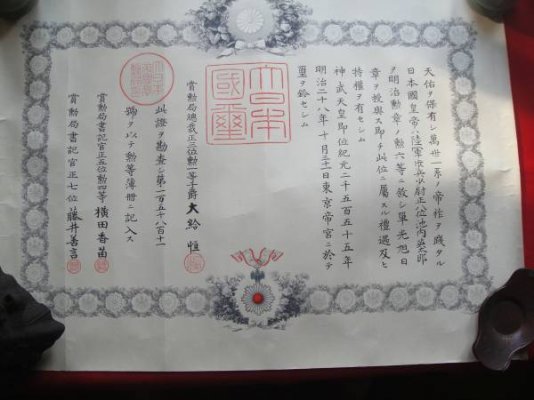 天佑ヲ保有シ萬世一系ノ帝祚ヲ踐タル
日本國皇帝ハ陸軍歩兵少尉正八位池内英太郎
ヲ明治勲章ノ勲六等ニ敘シ單光旭日
章ヲ授與ス即チ此位ニ屬スル禮遇及ヒ
特權ヲ有セシム
神武天皇即位紀元二千五百五十五年
明治二十八年十月三十一日東京帝宮ニ於テ
璽ヲ鈐セシム
大日本
國璽
賞勲局總裁正三位勲一等子爵大給恒
此證ヲ勘査シ第一万五千八百十一
號ヲ以テ勲等簿册ニ記入ス
賞勲局書記官正五位勲四等横田香苗
賞勲局書記官正七位藤井善言